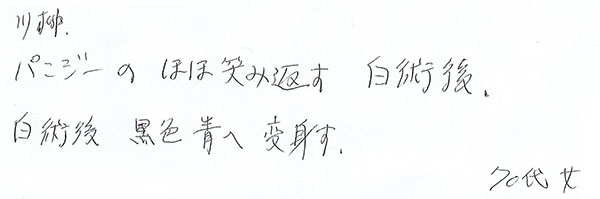 川柳.
パンジーの ほほ笑み返す 白術後.
白術後 黒色青へ 変身す.
70代 女